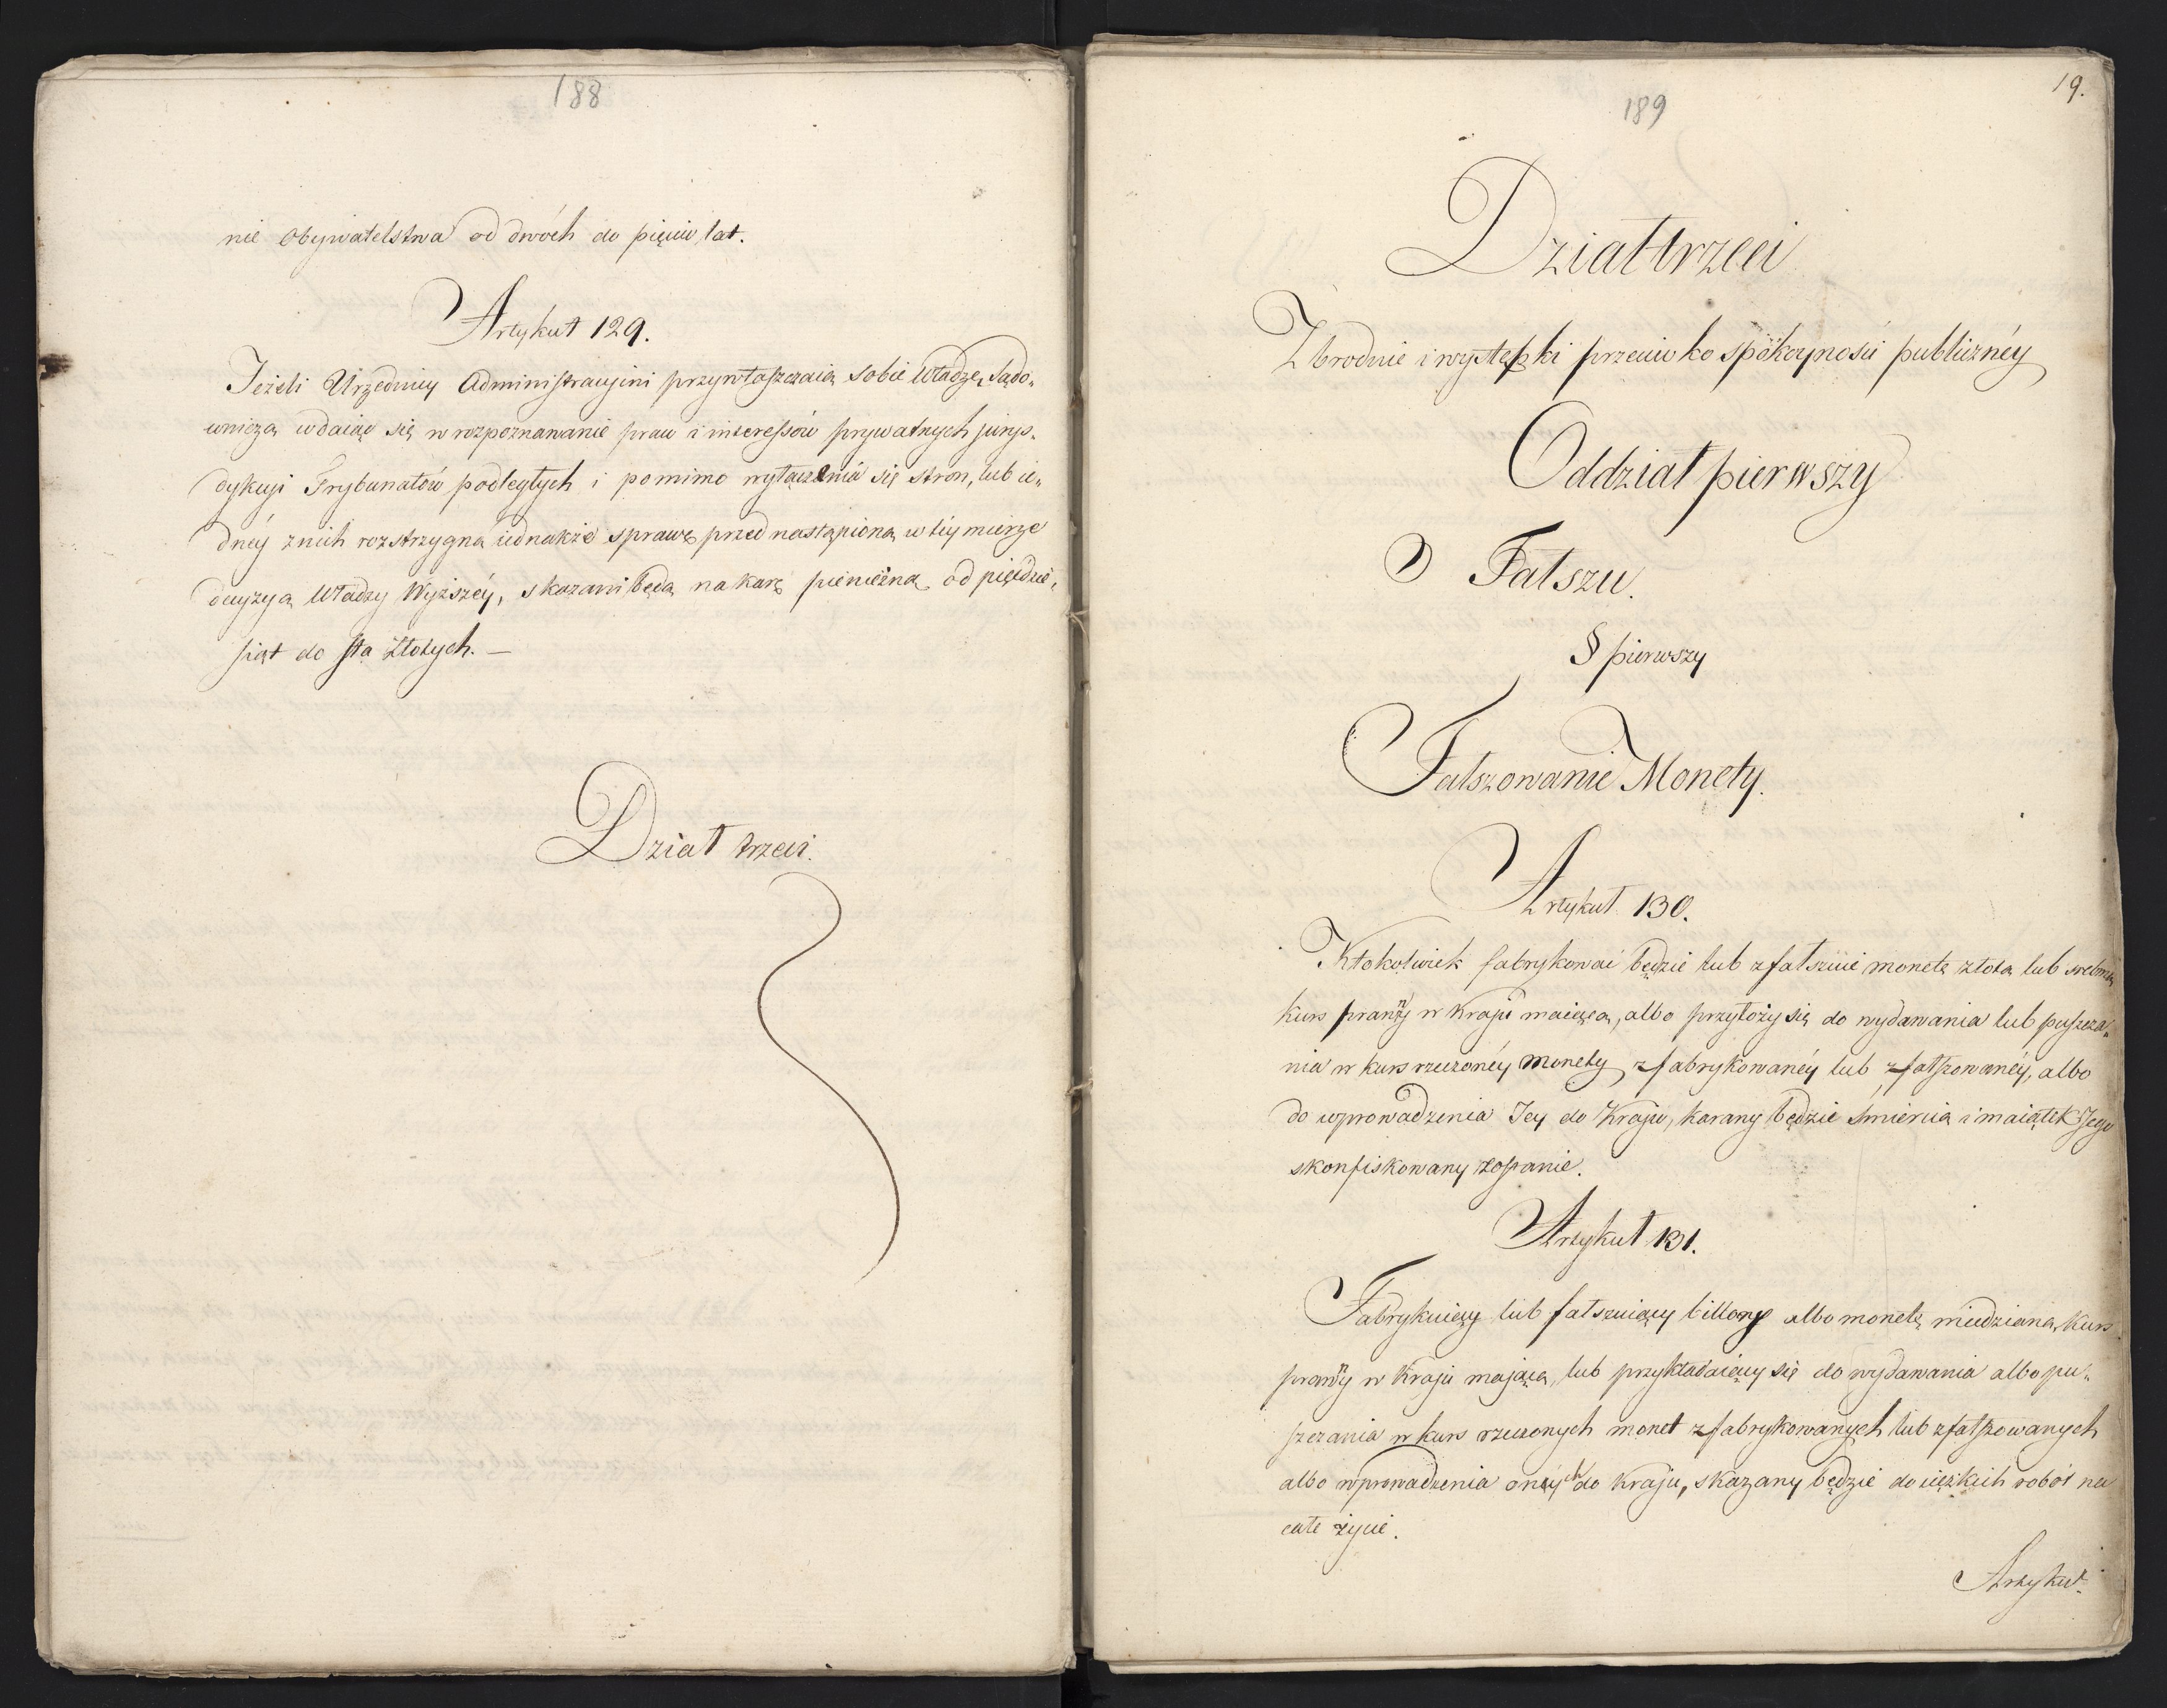 188
nie Obywatelstwa od dwóch do pięciu lat.
Artykuł 129.
Jeżeli Urzędnicy Administracyini przywłaszczaią sobie Władzę Sądo„
wniczą wdaiąc się w rozpoznawanie praw i interessów prywatnych jurys„
dykcyi Trybunałów podległych i pomimo wyłączenia się stron, lub ie„
dnéy znich rozstrzygną iednakże sprawę przed nastąpioną w téy mierze
decyzyą Władzy Wyższéy, skazani będą na karę pieniężną od pięćdzie„
siąt do sta Złotych. —
Dział trzeci.
19.
189
Dział trzeci
Zbrodnie i występki przeciwko spokoynosci publicznéy
Oddział pierwszy
O Fałszu.
§ pierwszy
Fałszowanie Monety.
Artykuł 130.
Ktokolwiek fabrykować będzie lub zfałszuie monetę złotą lub srebrną
kurs prawny w kraju maiącą, albo przyłoży się do wydawania lub puszcza„
nia w kurs rzeczonéy monety zfabrykowanéy lub zfałszowanéy, albo
do wprowadzenia Jey do Kraju, karany będzie śmiercią i maiątek Jego
skonfiskowany zostanie.
Artykuł 131.
Fabrykuiący lub fałszuiący billony albo monetę miedzianą, kurs
prawny w Kraju mającą, lub przykładaiący się do wydawania albo pu„
szczania w kurs rzeczonych monet zfabrykowanych lub zfałszowanych
albo wprowadzenia onych do Kraju, skazany będzie do ciężkich robót na
całe życie.
Artykuł